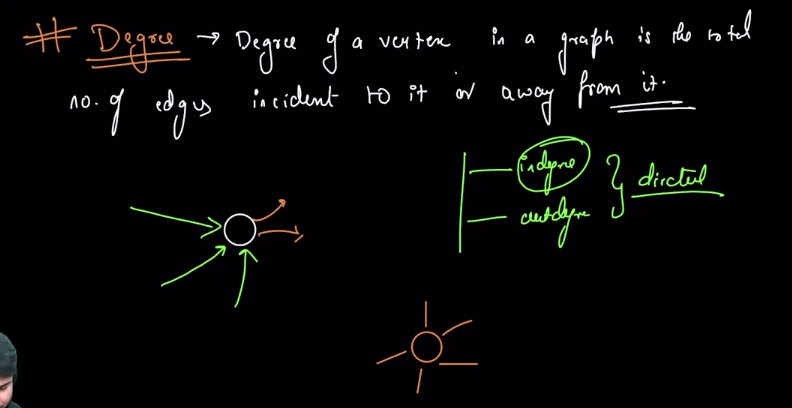 # Degree → Degree of a vertex in a graph is the total
no. of edges incident to it or away from it.
indegree
outdegree
directed